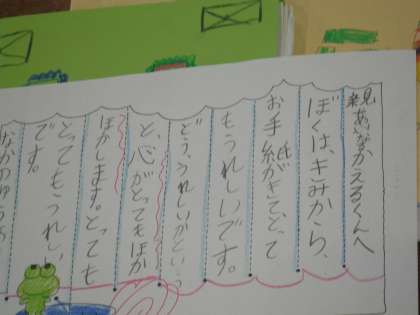 親あいなかえるくんへ
ぼくは、きみから、
お手紙がきて、とっても
もうれしいです。
どう、うれしいかという
と、心がとってもほか
ほかします。とっても
とってもうれしい
です。